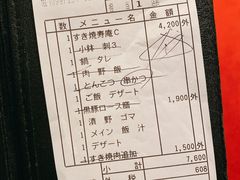 8 1
数 メニュー名 金額
1 すき焼寿庵C 4,200外
1 小林 刺3
1 鍋 タレ
1 肉野飯
1 とんこつ(串かつ
1 ご飯 デザート
1 黒豚ロース膳 1,900外
1 漬野ゴマ
1 メイン飯汁
1 デザート
1 すき焼肉追加 1,500外
小計 7,600
外税 608